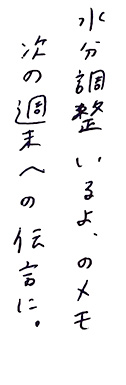 水分調整いるよ、のメモ
次の週末への伝言に。